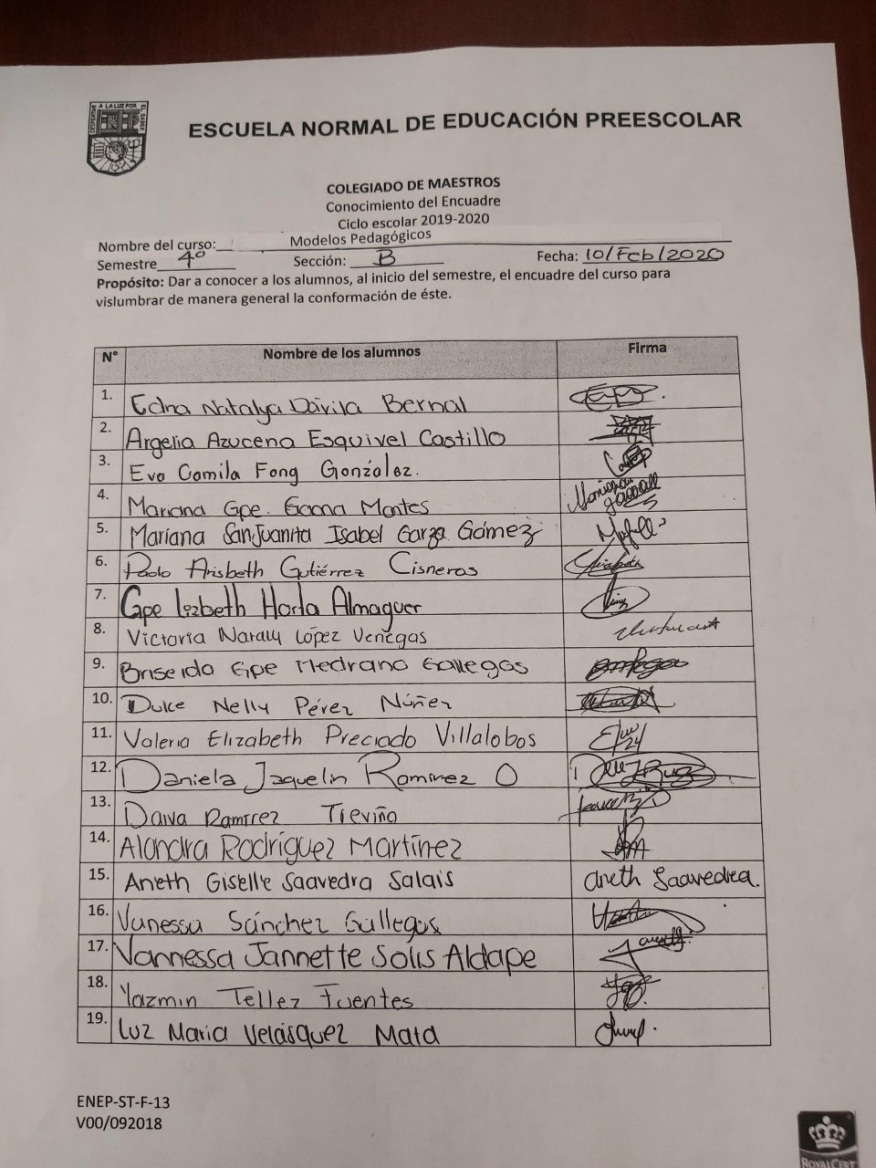 ESCUELA NORMAL DE EDUCACIÓN PREESCOLAR
COLEGIADO DE MAESTROS
Conocimiento del Encuadre
Ciclo escolar 2019-2020
Nombre del curso: Modelos Pedagógicos
Semestre 4° Sección: B Fecha: 10/Feb/2020
Propósito: Dar a conocer a los alumnos, al inicio del semestre, el encuadre del curso para
vislumbrar de manera general la conformación de éste.
N° Nombre de los alumnos Firma
1. Edna Natalya Dávila Bernal
2. Argelia Azucena Esquivel Castillo
3. Eva Camila Fong González.
4. Mariana Gpe. Gaona Montes
5. Mariana SanJuanita Isabel Garza Gómez
6. Paola Arisbeth Gutiérrez Cisneros
7. Gpe Lizbeth Horta Almaguer
8. Victoria Nataly López Venegas
9. Briseida Gpe Medrano Gallegos
10. Dulce Nelly Pérez Núñez
11. Valeria Elizabeth Preciado Villalobos
12. Daniela Jaquelin Ramirez O
13. Danva Ramirez Treviño
14. Alondra Rodríguez Martínez
15. Aneth Giselle Saavedra Salais Aneth Saavedra.
16. Vanessa Sánchez Gallegos
17. Vannessa Jannette Solis Aldape
18. Yazmin Tellez Fuentes
19. Luz Maria Velásquez Mata
ENEP-ST-F-13
V00/092018
ROYAL CERT